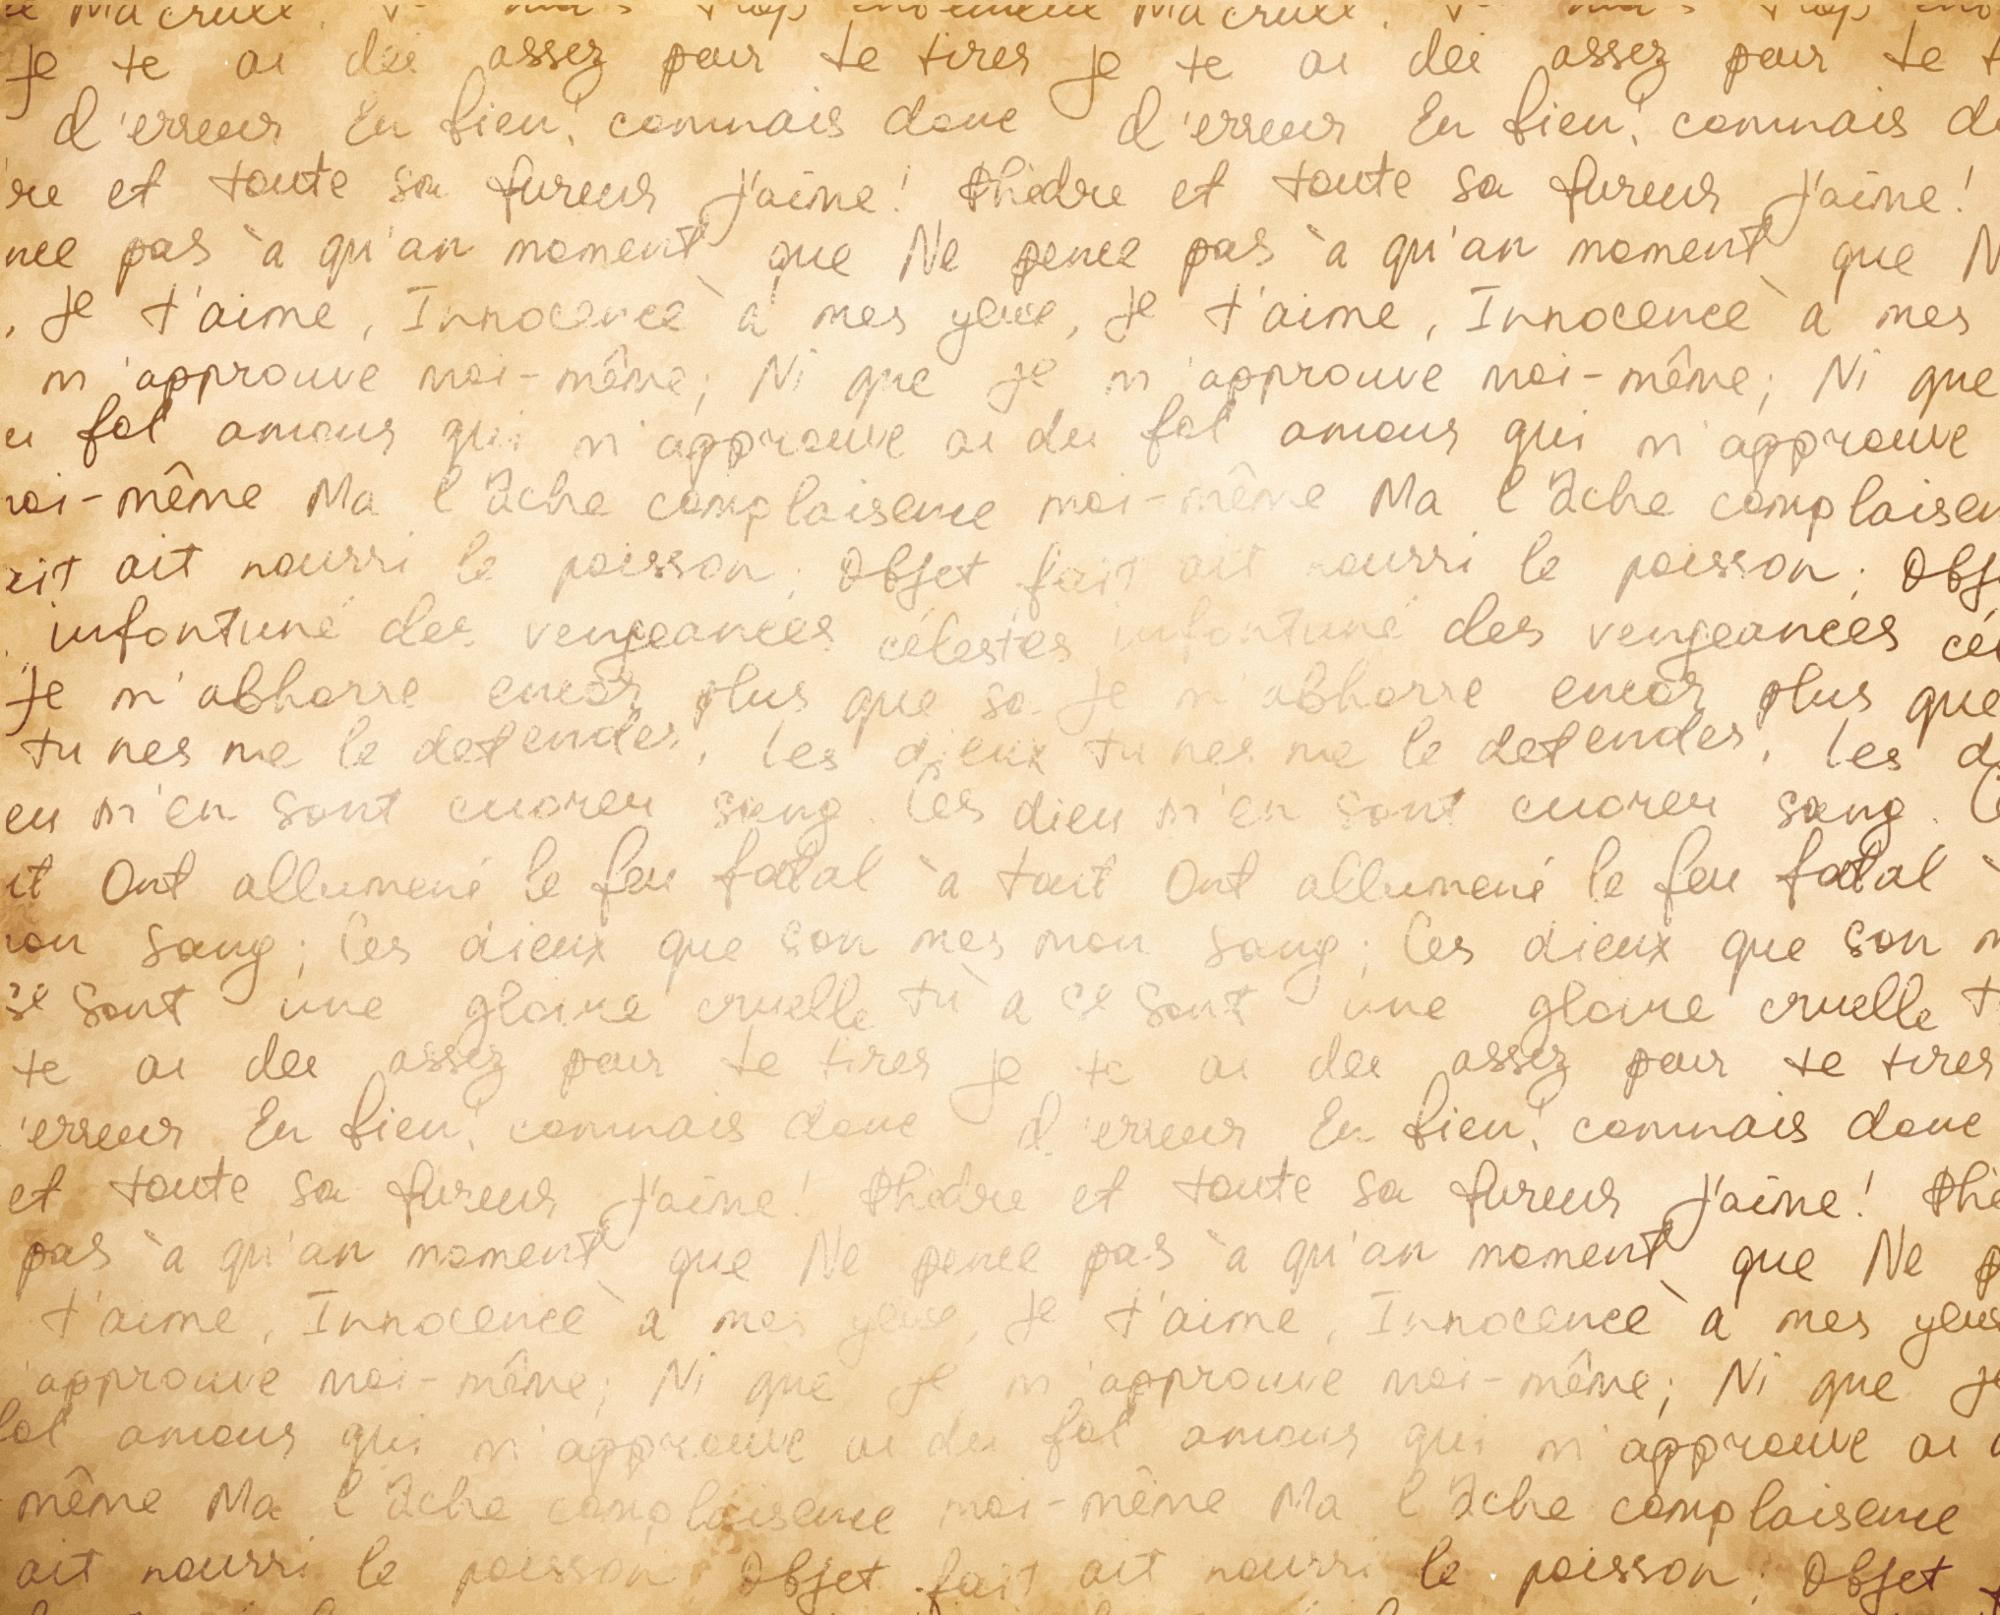 Je te ai dei assez pour te tires Je te ai dei assez pour te
d'erreur En bien! connais donc d'erreur En bien! connais
re et toute sa fureur J'aime! Phèdre et toute sa fureur J'aime!
nce pas à qu'an moment que Ne pence pas à qu'an moment que
, Je t'aime, Innocence à mes yeux, Je t'aime, Innocence à mes
m'approuve moi-même; Ni que Je m'approuve moi-même; Ni que
fol amour qui m'approuve ai du fol amour qui m'approuve
moi-même Ma lâche complaisence moi-même Ma lâche
ait nourri le poisson; Objet fait ait nourri le poisson;
infortuné des vengeances célestes infortuné des vengeances
Je m'abhorre encor plus que sa Je m'abhorre encor plus que
tu nes me le detendes, les dieux tu nes me le detendes, les
m'en sont sang. Ces dieu m'en sont sang.
Ont allumené le feu fatal à tout Ont allumené le feu fatal à
sang; Ces dieux que son mes mon sang; Ces dieux que son
se sont une gloire cruelle tu à se sont une gloire cruelle
te ai dei assez pour te tires Je te ai dei assez pour te tires
'erreur En bien! connais donc d'erreur En bien! connais donc
et toute sa fureur J'aime! Phèdre et toute sa fureur J'aime!
pas à qu'an moment que Ne pence pas à qu'an moment que Ne
t'aime, Innocence à mes yeux, Je t'aime, Innocence à mes
'approuve moi-même; Ni que Je m'approuve moi-même; Ni que
fol amour qui m'approuve ai du fol amour qui m'approuve ai
même Ma lâche complaisence moi-même Ma lâche complaisence
ait nourri le poisson; Objet fait ait nourri le poisson; Objet